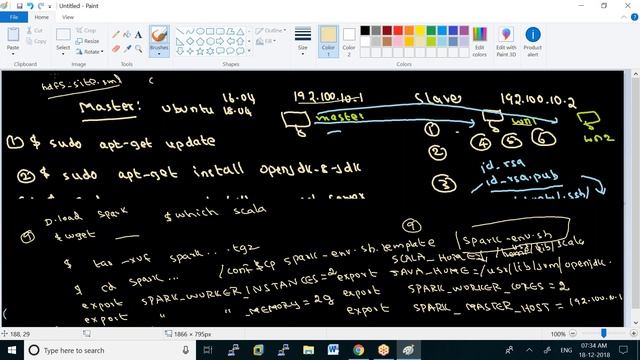 Untitled - Paint
File Home View
Paste
Clipboard
Select
Crop
Resize
Rotate
Image
Tools
Brushes
Outline
Fill
Shapes
Size
Color 1
Color 2
Colors
Edit colors
Edit with Paint 3D
Product alert
hdfs-site.xml (
Master: ubuntu 16.04 18.04
192.100.10.1 Slaves 192.100.10.2
master wn1 wn2
① $ sudo apt-get update ① ④ ⑤ ⑥
②
② $ sudo apt-get install openjdk-8-jdk ③
id_rsa
id_rsa.pub
.ssh/
D.load spark $ which scala ⑨
$ wget
$ tar -xvf spark... .tgz
/conf $ cp spark-env.sh.template spark-env.sh
$ cd spark...
export SCALA_HOME=/ /lib/scala
export SPARK_WORKER_INSTANCES=2 export JAVA_HOME=/usr/lib/jvm/openjdk..
export " " _MEMORY=2g export SPARK_WORKER_CORES=2
export SPARK_MASTER_HOST=192.100.10.1
188, 29
1866 × 795px
100%
Type here to search
07:34 AM
18-12-2018